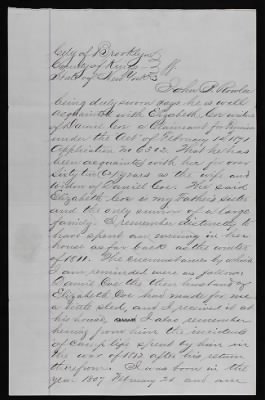 City of Brooklyn
County of Kings } ss
State of New York
John P. Rowla
being duly sworn says he is well
acquainted with Elizabeth Coe widow
of Daniel Coe a Claimant for Pension
under the Act of February 14 1871
Application No 6302. That he has
been acquainted with her for over
Sixty two years as the wife and
widow of Daniell Coe. The said
Elizabeth Coe is my Fathers Sister
and the only survivor of a large
family. I remember distinctly to
have spent an evening in his
house as far back as the winter
of 1811. The circumstances by which
I am reminded were as follows
Daniel Coe the then husband of
Elizabeth Coe had made for me
a little sled, and I received it at
his house, I also remember
hearing from him the incidents
of camp life spent by him in
the war of 1812 after his return
therefrom. I was born in the
year 1807 February 21 and am